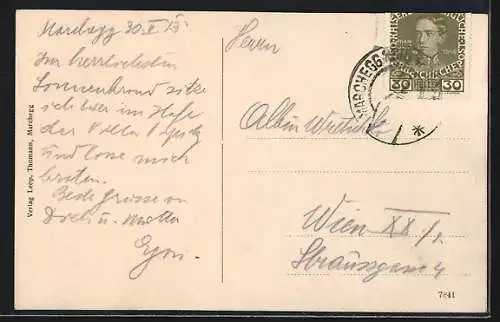 Marchegg 30.
Im herrlichsten
Sonnenbrand sitze
ich hier im Hofe
der
und lasse mich
braten.
Beste Grüsse an
Dich u. Mutter
Egon.
Verlag Leop. Thomann, Marchegg
Herrn
Albin
Wien XX/1
Straussgasse 4
MARCHEGG
30 30
7841